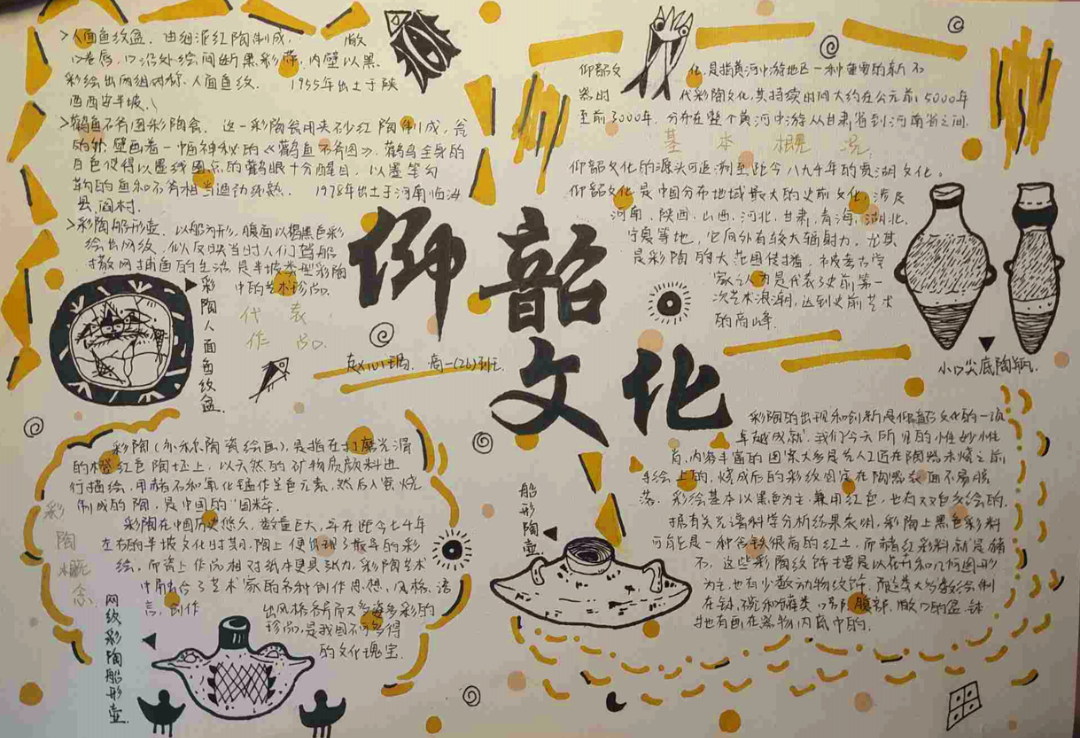 >人面鱼纹盆，由细泥红陶制成，敞
口卷唇，口沿处绘间断黑彩带，内壁以黑
彩绘出两组对称人面鱼纹。1955年出土于陕
西西安半坡。
>鹳鱼石斧图彩陶瓮，这一彩陶瓮用夹砂红陶制成，瓮
的外壁画着一幅神秘的《鹳鱼石斧图》，鹳鸟全身的
白色使得以墨线圈点的鹳眼十分醒目，以墨笔勾
的鱼和石斧相当生动纯熟。1978年出土于河南临汝
县阎村。
>彩陶船形壶，以船为形，腹面以褐黑色彩
绘出网纹，似反映当时人们驾船
撒网捕鱼的生活，是半坡类型彩陶
中的艺术珍品。
代表
作品
彩陶人面鱼纹盆
仰韶文
化，是指黄河中游地区一种重要的新石
器时
代彩陶文化，其持续时间大约在公元前5000年
至前3000年，分布在整个黄河中游从甘肃省到河南省之间。
基本概况
仰韶文化的源头可追溯至距今八九千年的裴湖文化。
仰韶文化是中国分布地域最大的史前文化，涉及
河南、陕西、山西、河北、甘肃、青海、湖北、
宁夏等地，它向外有较大辐射力，尤其
是彩陶的大范围传播，被
家认为是代表了史前第一
次艺术浪潮，达到史前艺术
的高峰。
小口尖底陶瓶
仰韶
文化
高一(26)班
彩陶(亦称陶瓷绘画)，是指在打磨光滑
的橙红色陶坯上，以天然的矿物质颜料进
行描绘，用赭石和氧化锰作呈色元素，然后入窑烧
制成的陶，是中国的"国粹"。
彩陶在中国历史悠久，数量巨大，早在距今七千年
左右的半坡文化时期，陶上便出现了最早的彩
绘，而瓷上作画相对纸本更具张力，彩陶艺术
中融合了艺术家的各种创作思想、风格、语
言，创作
出风格各异而又多姿多彩的
珍品，是我国不可多得
的文化瑰宝。
彩陶概念
网纹彩陶船形壶
船形陶壶
彩陶的出现和创新是仰韶文化的一项
卓越成就，我们今天所见的惟妙惟
肖、内容丰富的图案大多是古人工匠在陶器未烧之前
手绘上的，烧成后的彩纹固定在陶器表面不易脱
落。彩绘基本以黑色为主，兼用红色，也有双色绘的。
据有关光谱科学分析结果表明，彩陶上黑色彩料
可能是一种含铁很高的红土，而赭红彩料就是赭
石，这些彩陶纹饰主要是以花卉和几何图形
为主，也有少数动物纹饰，而这类大多数绘制
在钵、碗和罐类口部、腹部，敞口的盆、钵
等也有画在器物内底中的。